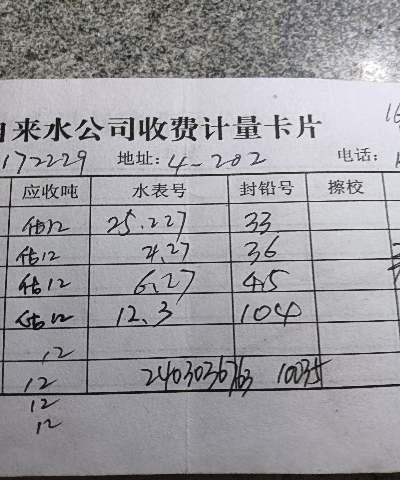 来水公司收费计量卡片
172229 地址: 4-202 电话:
应收吨 水表号 封铅号 擦校
估12 25.227 33
估12 4.27 36
估12 6.27 45
估12 12.3 104
12
12 240303676763 10035
12
12